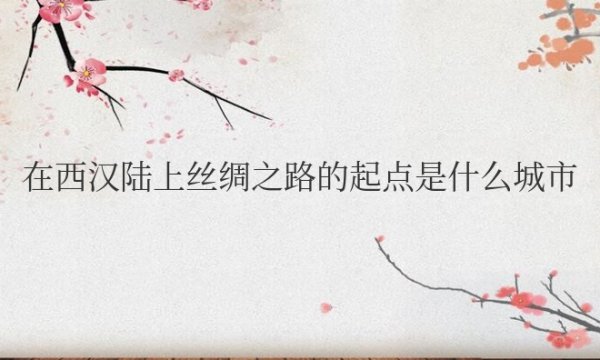 在西汉陆上丝绸之路的起点是什么城市